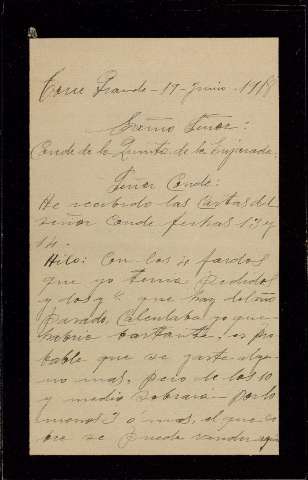 Torre Grande - 17 - Junio - 191
Exsmo Señor:
Conde de la Quinta de la Enjarada.
Señor Conde:
He recibido las Cartas del
señor Conde fechas 13 y
14.
Hilo: Con los 4 fardos
que yo tenia pedidos
y los que hay del año
pasado, Calculaba yo que
habria bastante, es pro
bable que se gaste algu
no mas, pero de los 10
y medio sobrara por lo
menos 3 ó mas, el que so
bre se puede vender